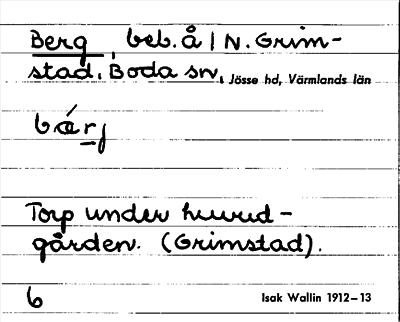 Berg, beb. å | N. Grim-
stad, Boda sn, Jösse hd, Värmlands län
bárj
Torp under huvud-
gården. (Grimstad).
6
Isak Wallin 1912–13